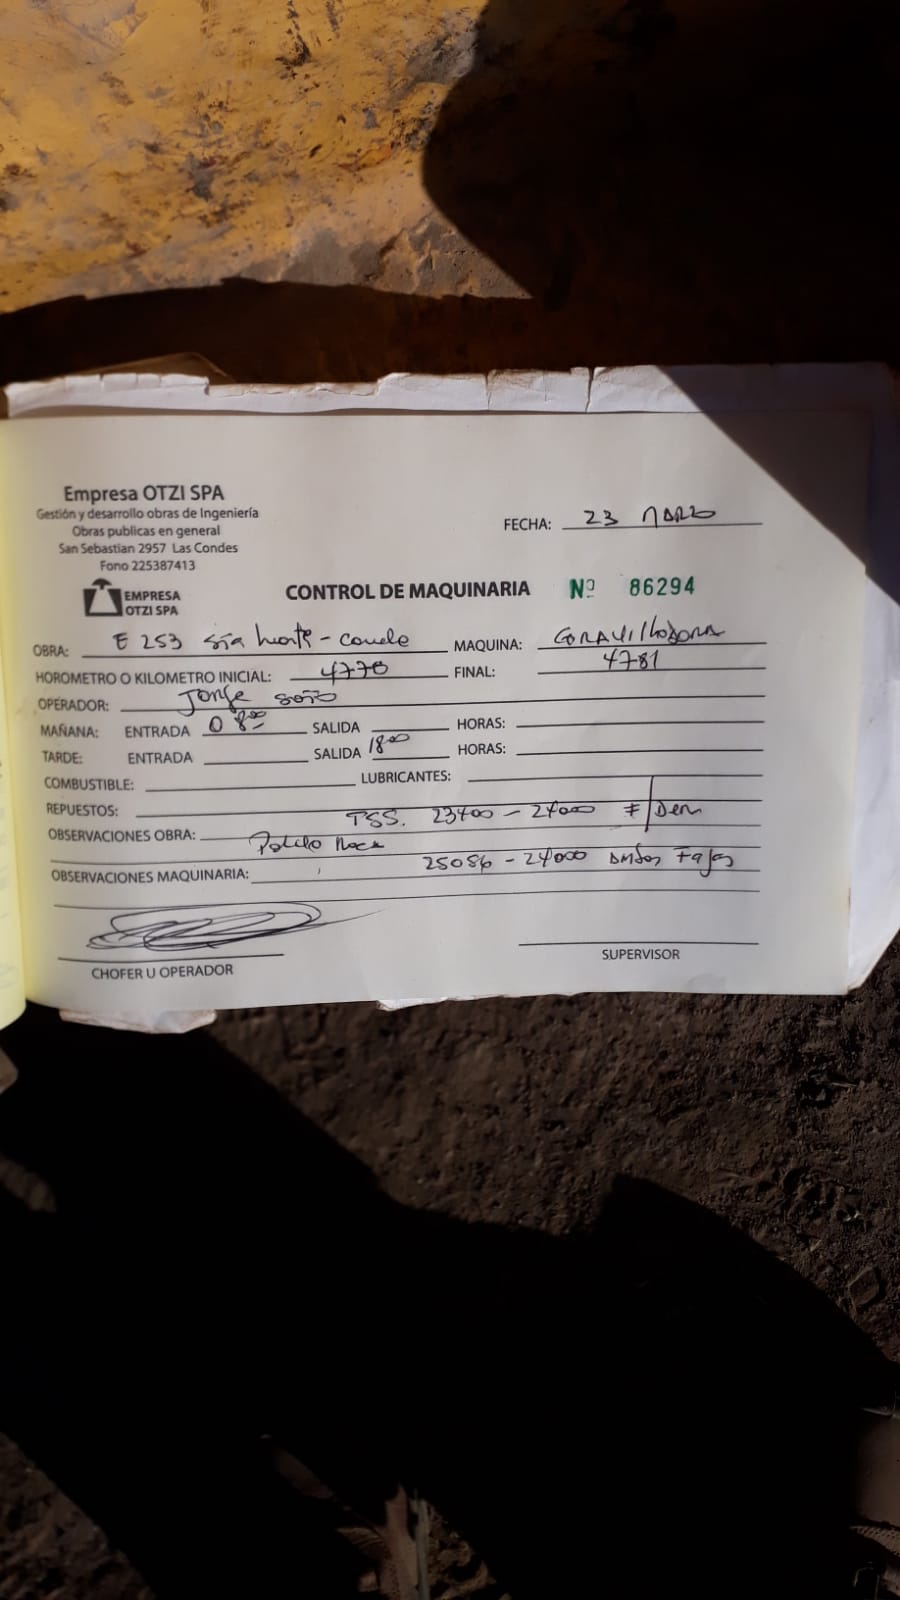 Empresa OTZI SPA
Gestión y desarrollo obras de Ingeniería
Obras publicas en general
San Sebastian 2957 Las Condes
Fono 225387413
EMPRESA
OTZI SPA
FECHA: 23 MARZO
CONTROL DE MAQUINARIA Nº 86294
OBRA: E 253
MAQUINA: GRAVILLADORA
HOROMETRO O KILOMETRO INICIAL: 4778
FINAL: 4781
OPERADOR: Jorge Soto
MAÑANA: ENTRADA 08⁰⁰ SALIDA HORAS:
TARDE: ENTRADA SALIDA 18⁰⁰ HORAS:
COMBUSTIBLE: LUBRICANTES:
REPUESTOS:
TSS. 23400 - 24000
OBSERVACIONES OBRA:
25086 - 24000 Ambas Fajas
OBSERVACIONES MAQUINARIA:
CHOFER U OPERADOR
SUPERVISOR